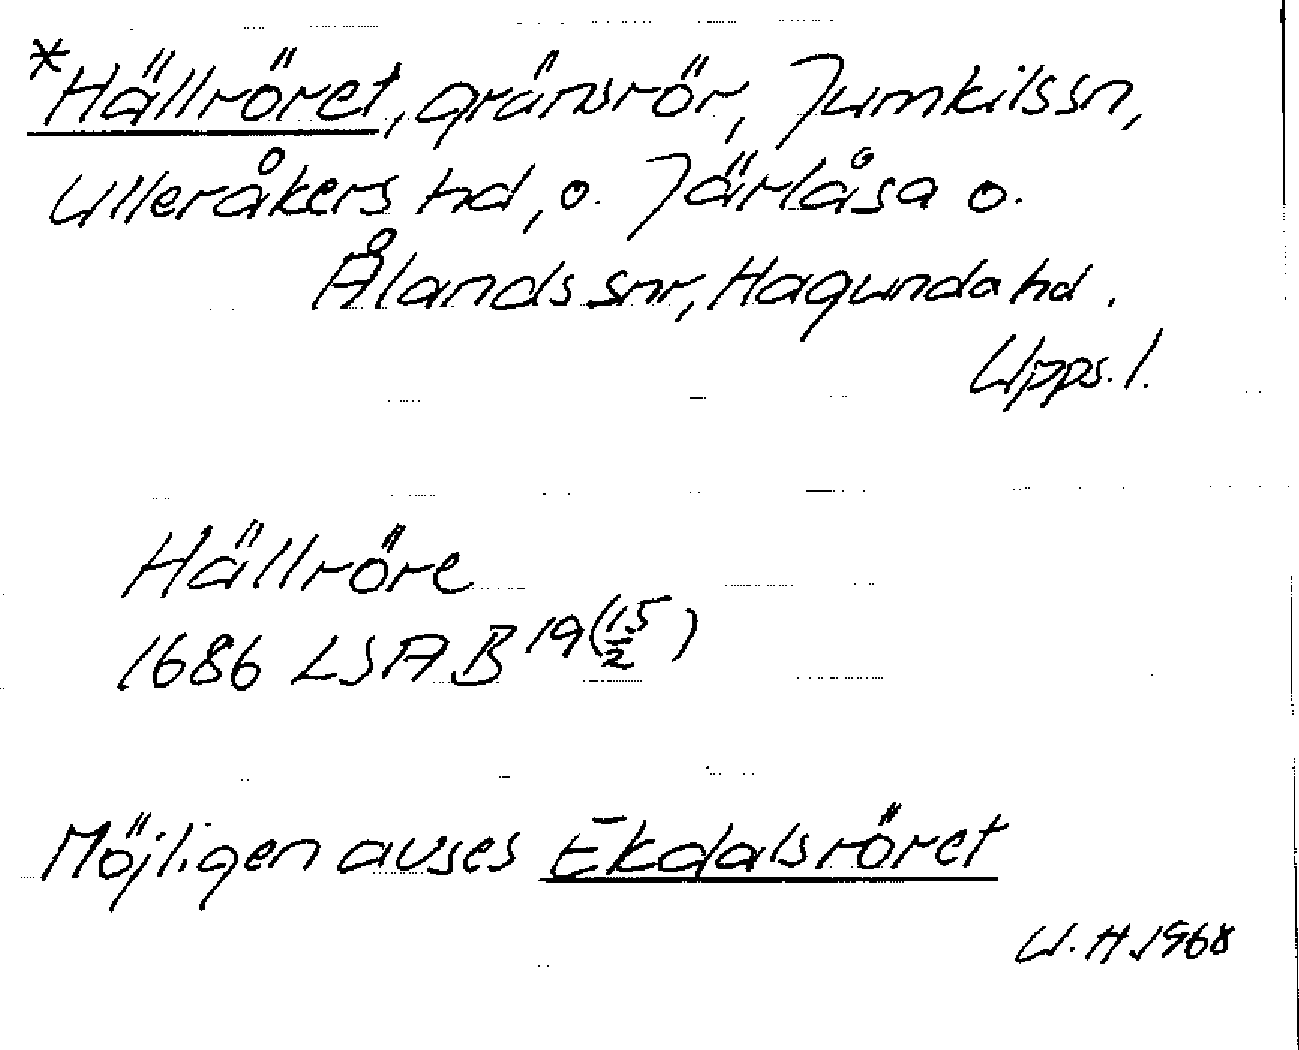 *Hällröret, gränsrör, Jumkils sn,
Ulleråkers hd, o. Järlåsa o.
Ålands snr, Hagunda hd.
Upps. l.
Hällröre
1686 LSA B 19 (15/2)
Möjligen avses Ekdalsröret
W. H. 1968